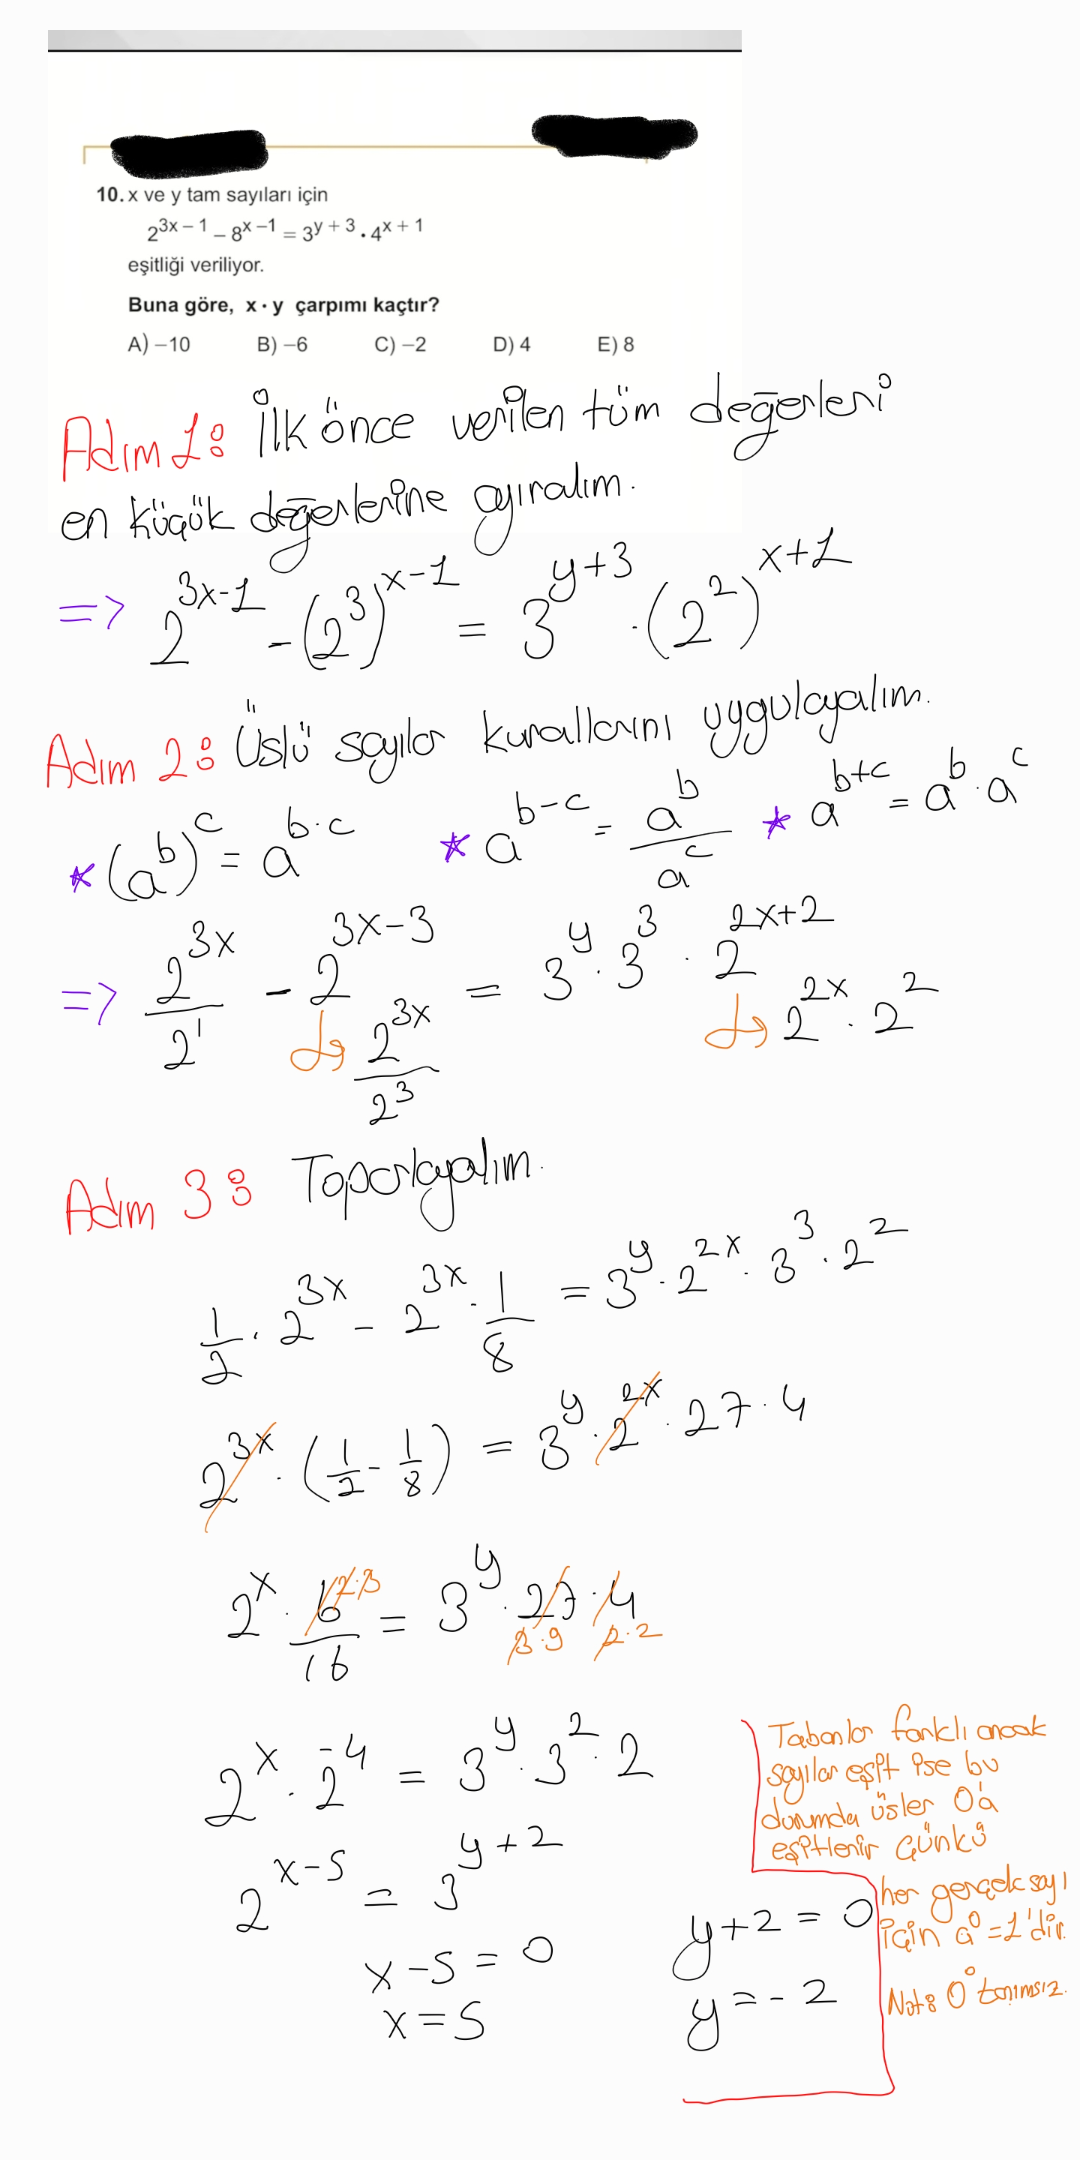 10. x ve y tam sayıları için
2^{3x – 1} – 8^{x –1} = 3^{y + 3} . 4^{x + 1}
eşitliği veriliyor.
Buna göre, x · y çarpımı kaçtır?
A) –10 B) –6 C) –2 D) 4 E) 8
Adım 1: İlk önce verilen tüm değerleri
en küçük değerlerine ayıralım.
=> 2^{3x-1} - (2^3)^{x-1} = 3^{y+3} · (2^2)^{x+1}
Adım 2: Üslü sayılar kurallarını uygulayalım.
* (a^b)^c = a^{b·c} * a^{b-c} = a^b / a^c * a^{b+c} = a^b · a^c
=> 2^{3x} / 2^1 - 2^{3x-3} = 3^y · 3^3 · 2^{2x+2}
2^{3x} / 2^3 2^{2x} · 2^2
Adım 3: Toparlayalım.
1/2 · 2^{3x} - 2^{3x} · 1/8 = 3^y · 2^{2x} · 3^3 · 2^2
2^{3x} · (1/2 - 1/8) = 3^y · 2^{2x} · 27 · 4
2^x · 6/16 = 3^y · 27 · 4
2·3 3·9 2·2
2^x · 2^{-4} = 3^y · 3^2 · 2
2^{x-5} = 3^{y+2}
x-5 = 0
x = 5
Tabanlar farklı ancak
sayılar eşit ise bu
durumda üsler 0'a
eşitlenir çünkü
her gerçek sayı
için a^0 = 1'dir.
Not: 0^0 tanımsız.
y+2 = 0
y = -2